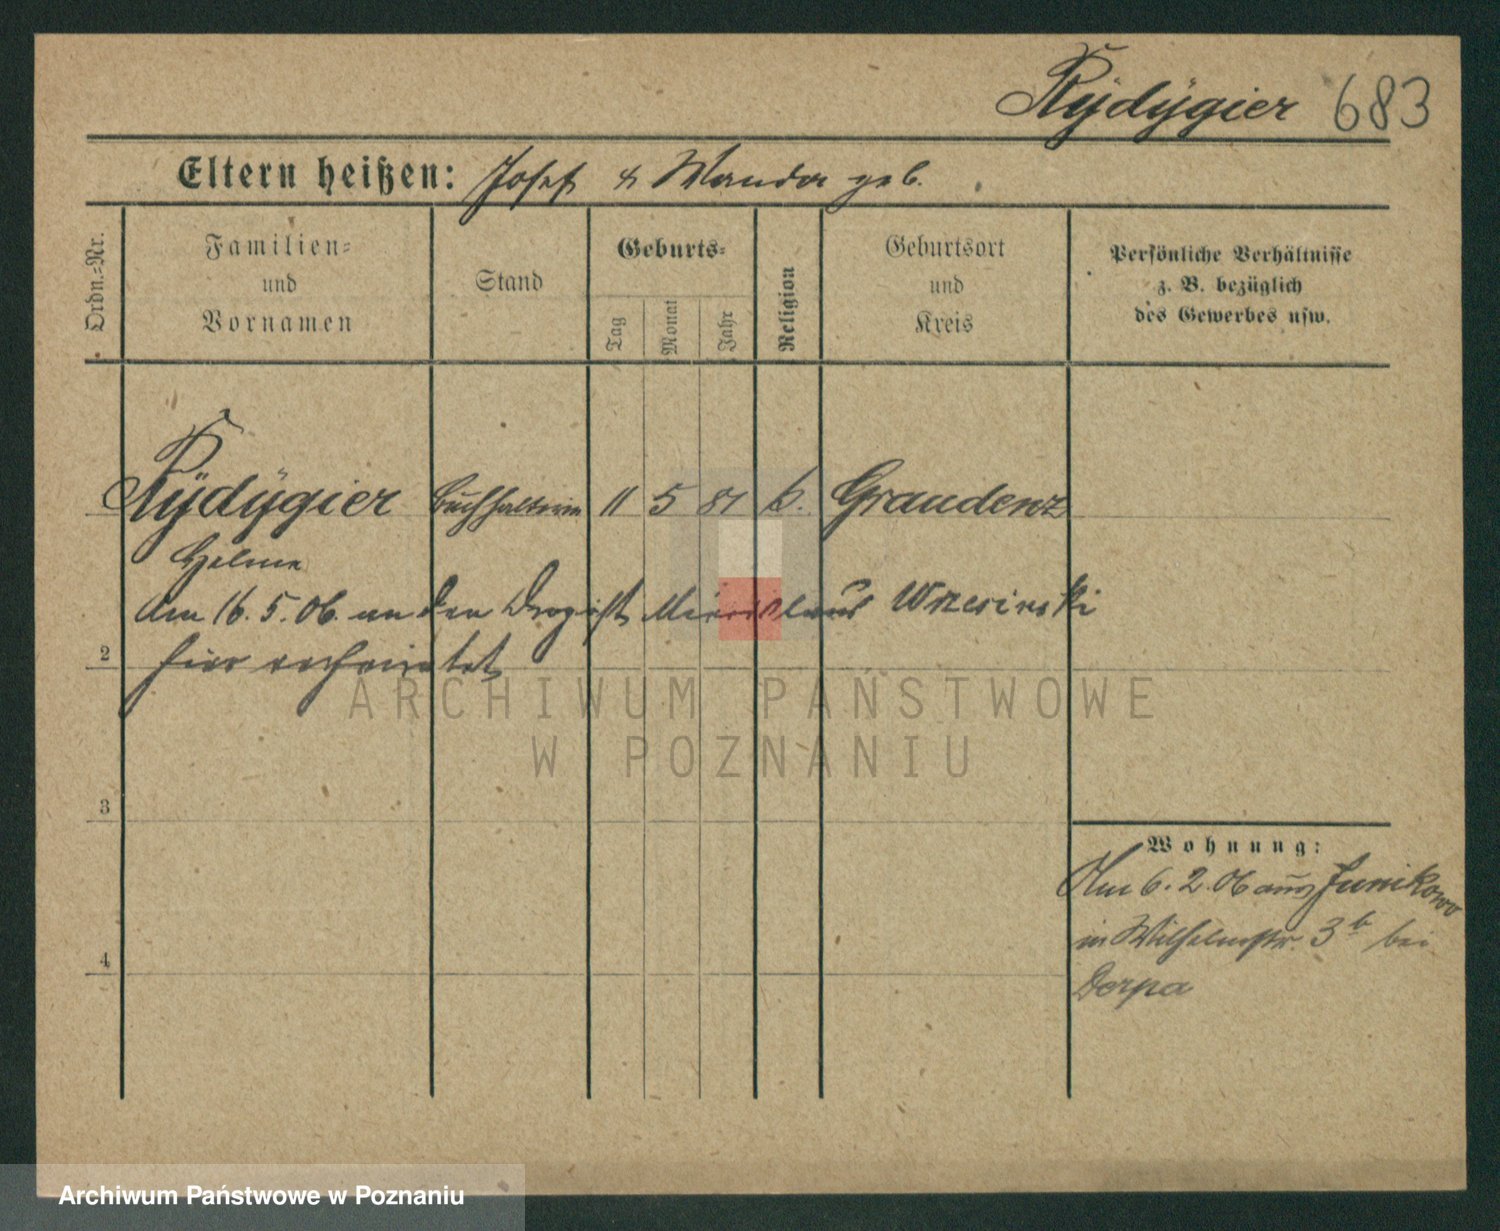 Rÿdÿgier 683
Eltern heißen: Josef & Wanda geb.
Ordn.=Nr.
Familien=
und
Vornamen
Stand
Geburts=
Tag
Monat
Jahr
Religion
Geburtsort
und
Kreis
Persönliche Verhältnisse
z. B. bezüglich
des Gewerbes usw.
Rÿdÿgier Buchhalterin 11 5 81 k. Graudenz
Helene
Am 16. 5. 06. an den Drogist Miecislaus Wrzesinski
2 hier verheiratet
3
4
Wohnung:
Am 6. 2. 06 aus Junikowo
in Wilhelmstr. 3b bei
Derpa
ARCHIWUM PAŃSTWOWE
W POZNANIU
Archiwum Państwowe w Poznaniu